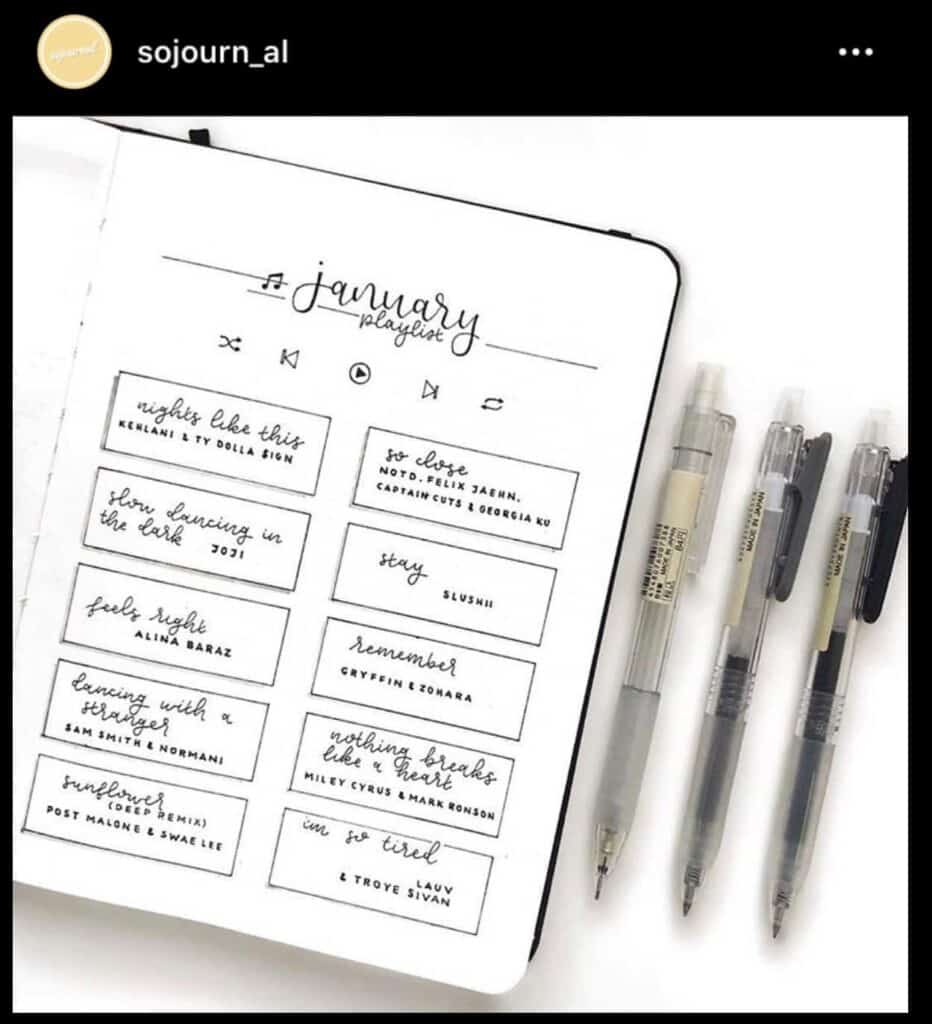 sojourn_al
january
playlist
nights like this
KEHLANI & TY DOLLA $IGN
slow dancing in
the dark JOJI
feels right
ALINA BARAZ
dancing with a
stranger
SAM SMITH & NORMANI
sunflower
(DEEP REMIX)
POST MALONE & SWAE LEE
so close
NOTD, FELIX JAEHN,
CAPTAIN CUTS & GEORGIA KU
stay
SLUSHII
remember
GRYFFIN & ZOHARA
nothing breaks
like a heart
MILEY CYRUS & MARK RONSON
i'm so tired
LAUV
& TROYE SIVAN
MADE IN JAPAN
MADE IN JAPAN
MADE IN JAPAN